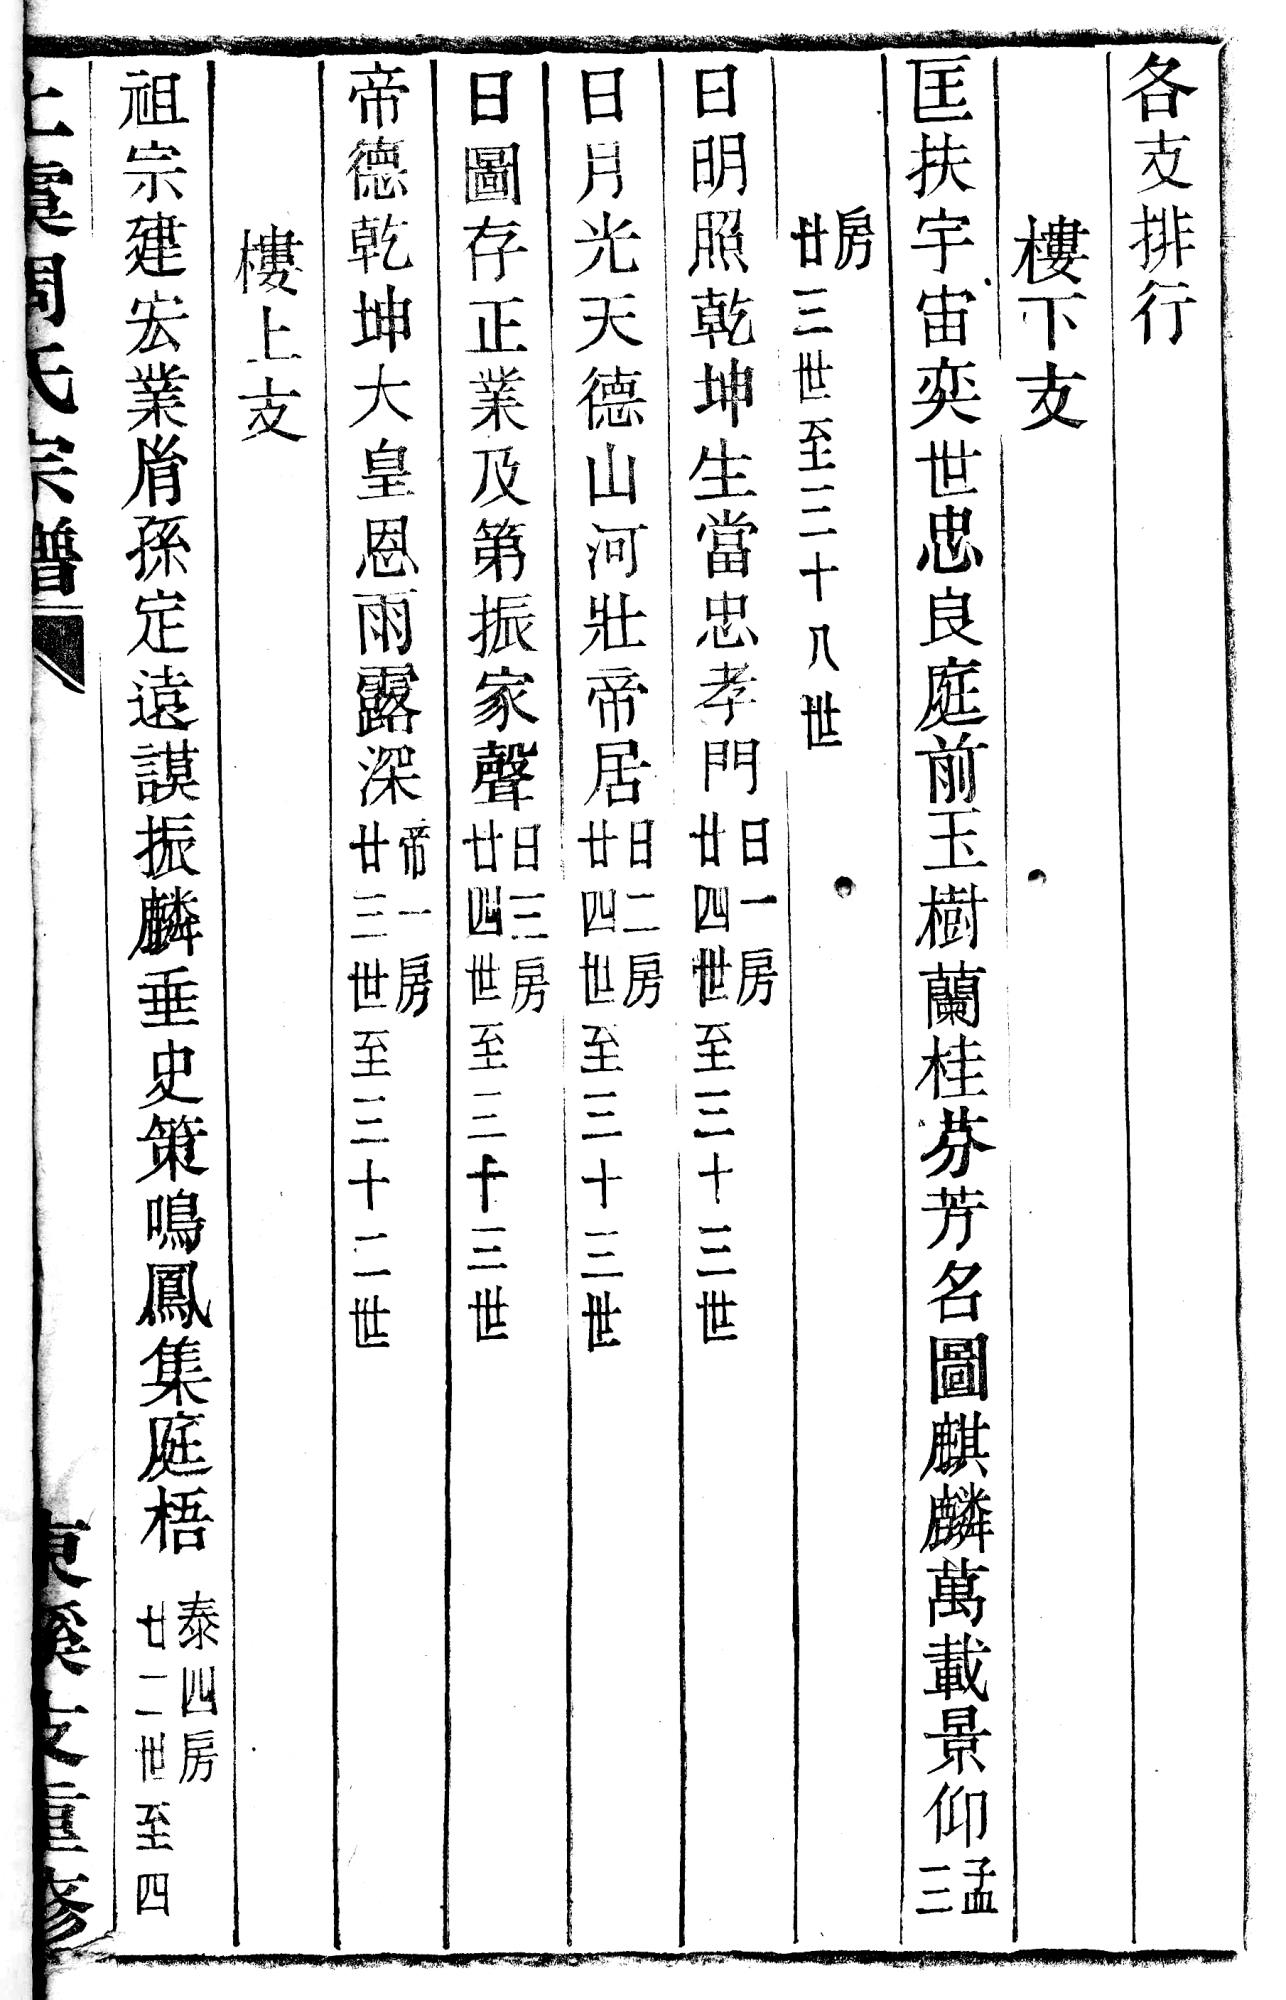 各支排行
樓下支
匡扶宇宙奕世忠良庭前玉樹蘭桂芬芳名圖麒麟萬載景仰孟三
房廿三世至三十八世
日明照乾坤生當忠孝門日一房廿四世至三十三世
日月光天德山河壯帝居日二房廿四世至三十三世
日圖存正業及第振家聲日三房廿四世至三十三世
帝德乾坤大皇恩雨露深帝一房廿三世至三十二世
樓上支
祖宗建宏業胤孫定遠謨振麟垂史策鳴鳳集庭梧泰四房廿二世至四
上虞周氏宗譜 東溪支重修